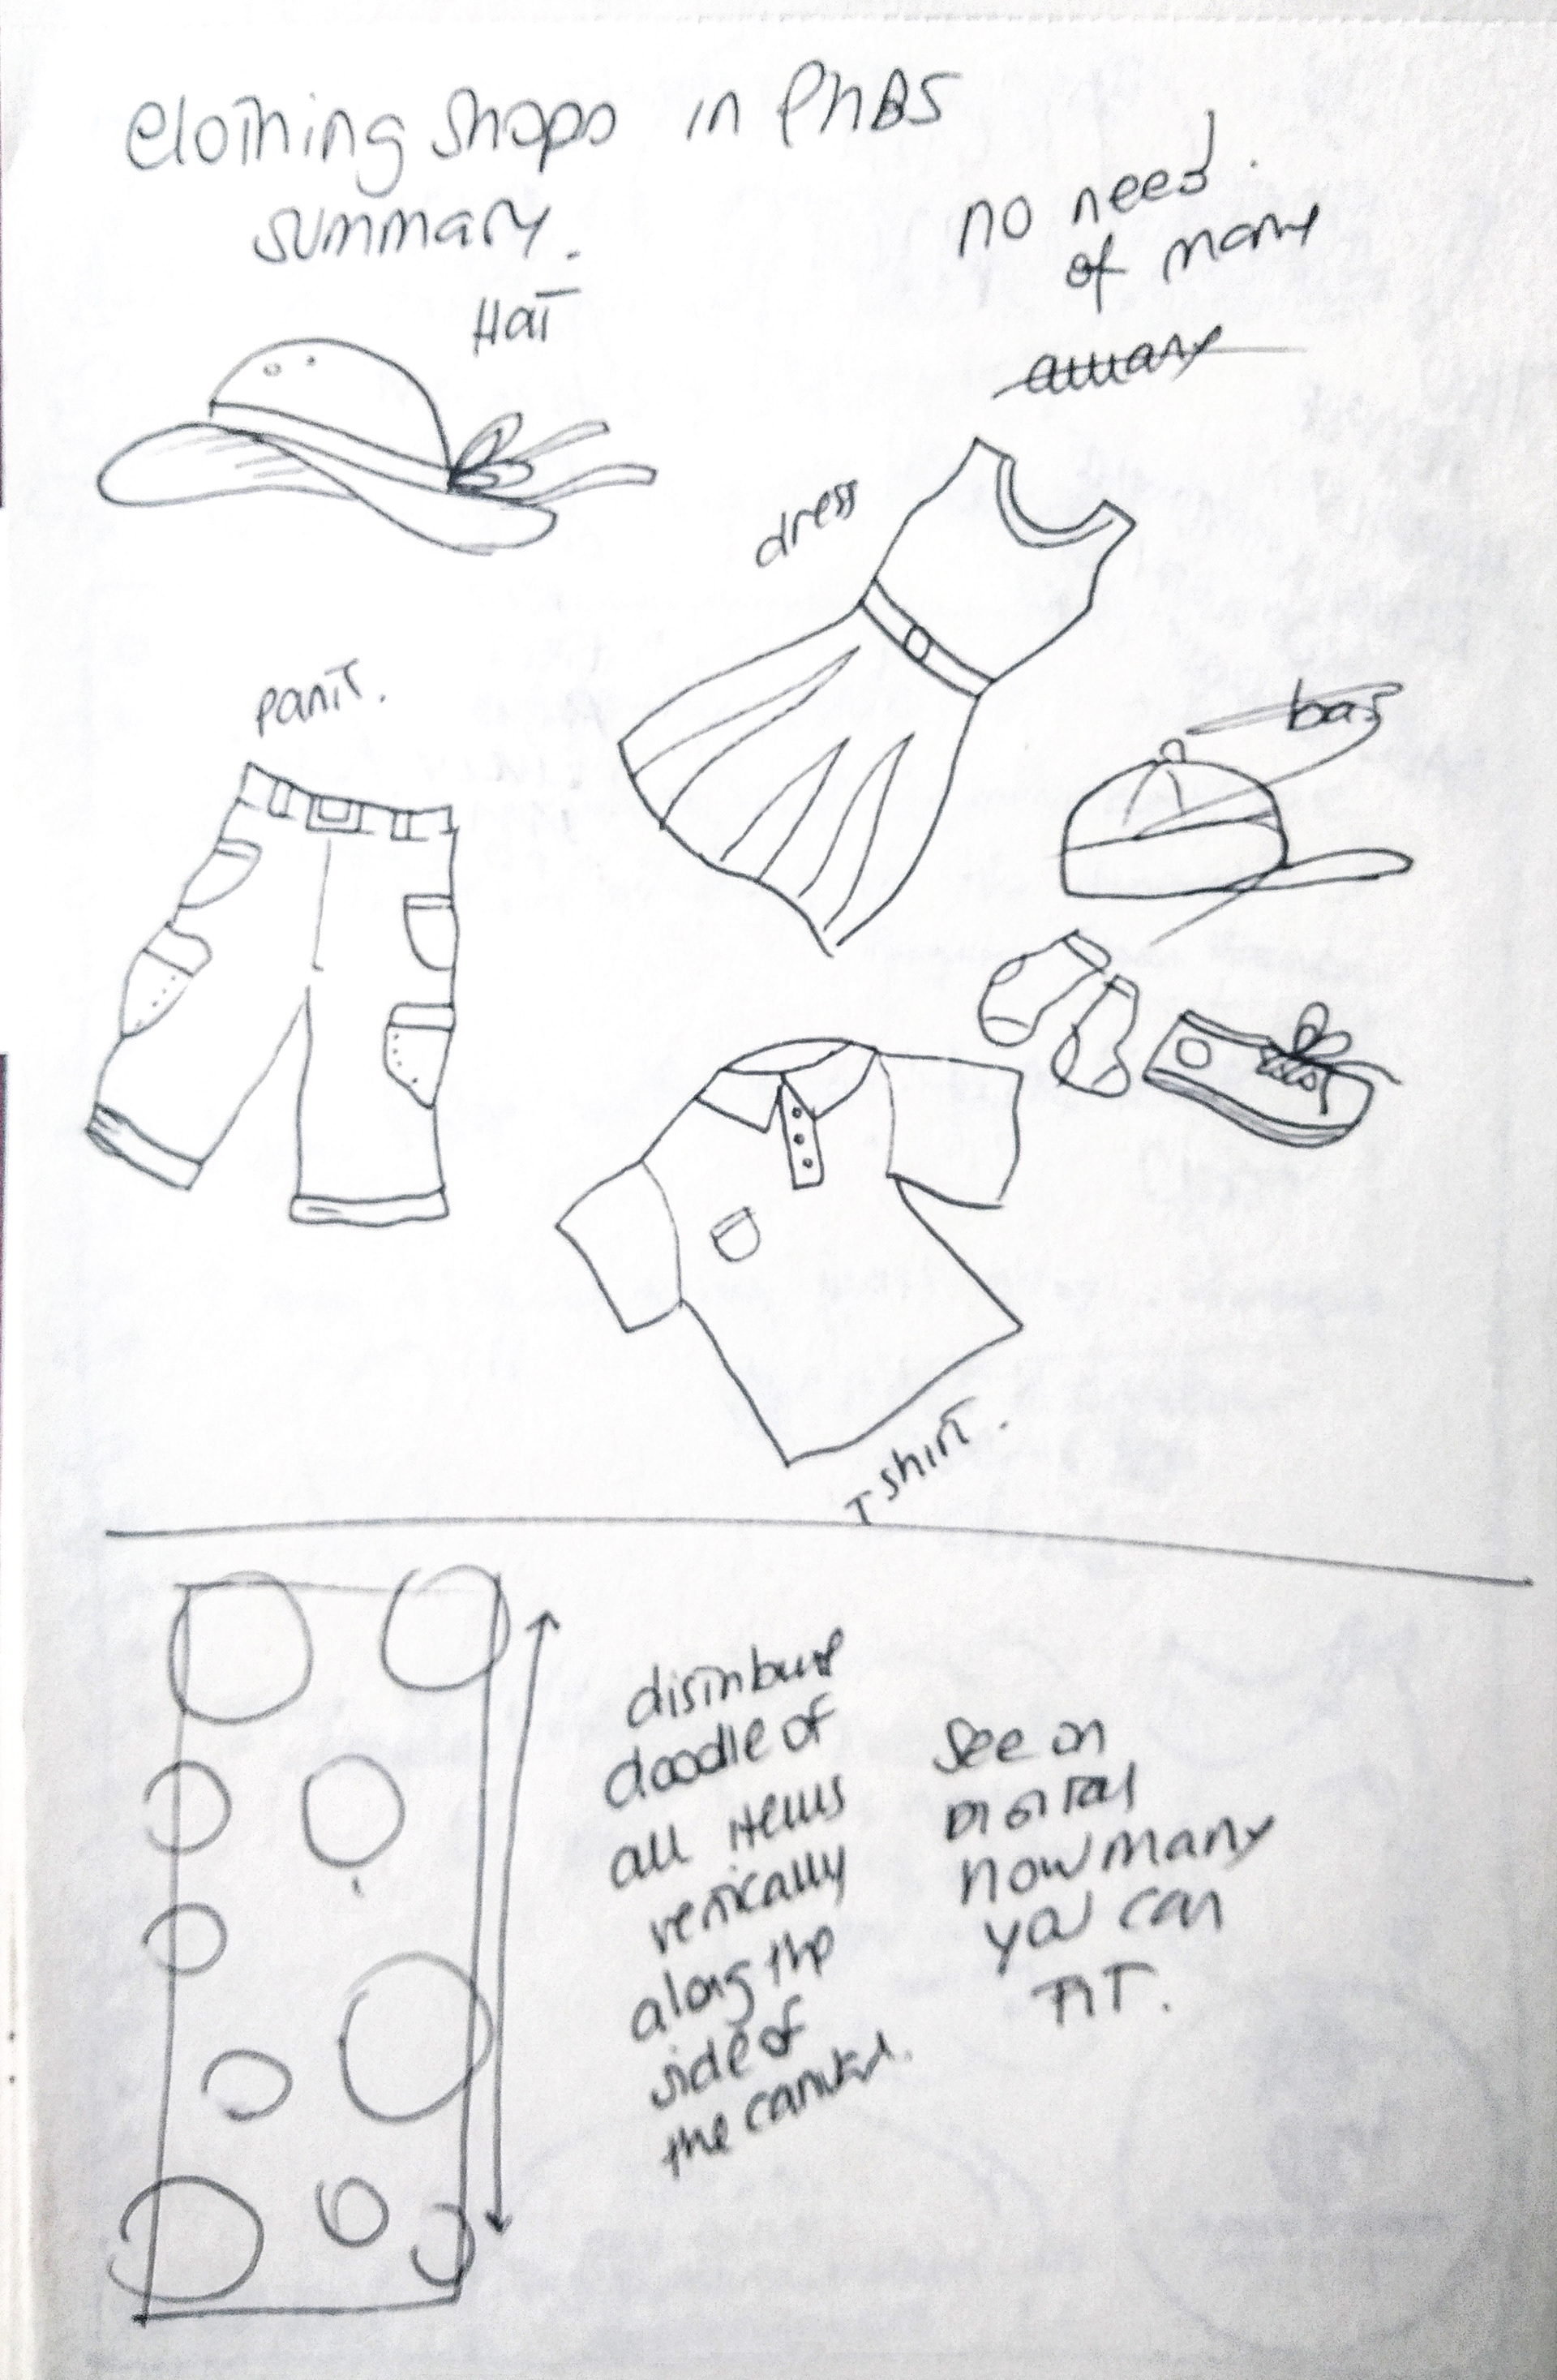 Clothing shops in PhBS
summary.
no need
of many
Hat
dress
pant.
T shirt.
distribute
doodle of
all items
vertically
along the
side of
the
See on
Digital
how many
you can
FIT.